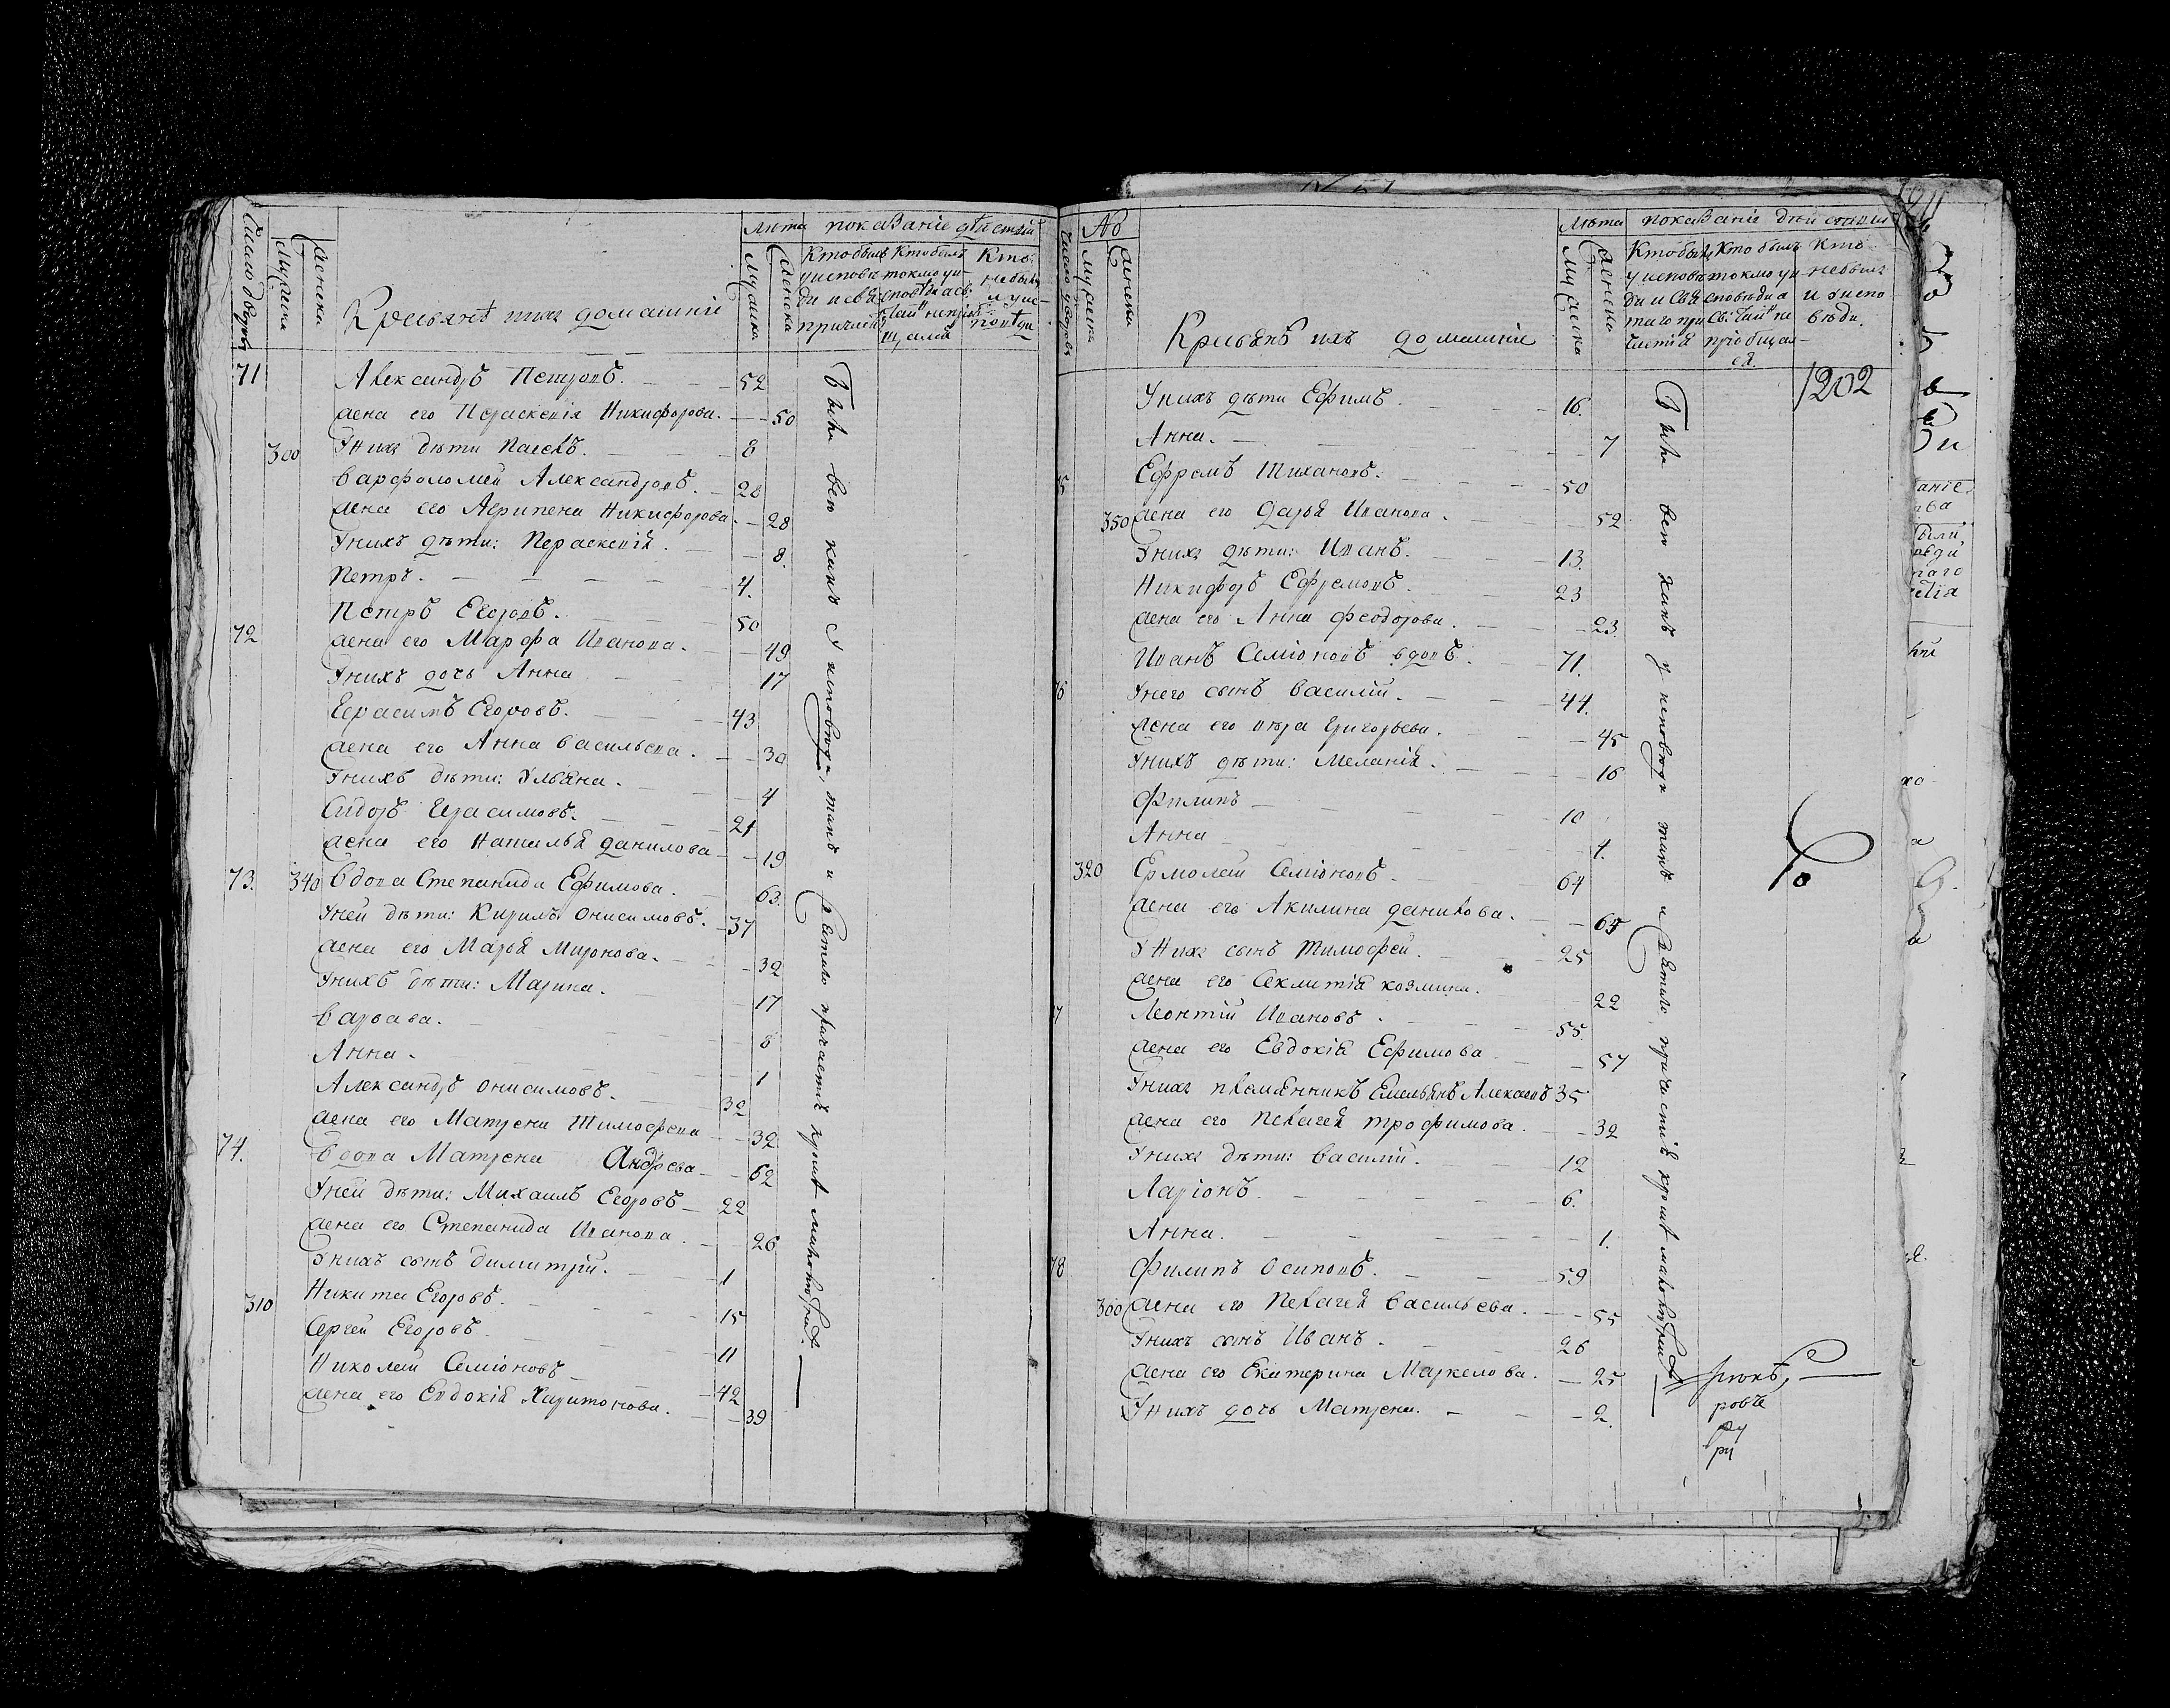 Число дворовъ
мужска
женска
Крестьянѣ ихъ домашніе
лѣта
показаніе дѣйствій
мужска
женска
Кто былъ у исповѣди и свя причастія
Кто былъ токмо у исповѣди а св. таинъ не пріобщался
Кто не былъ и у исповѣди
71 Александръ Петровъ. 52
жена его Параскевія Никифорова. 50
300 У нихъ дѣти Павелъ. 8
Варфоломей Александровъ. 28
жена его Агрипена Никифорова. 28
У нихъ дѣти: Параскевія. 8.
Петръ. 4.
Петръ Егоровъ. 50
72 жена его Марфа Иванова. 49
У нихъ дочь Анна 17
Герасимъ Егоровъ. 43
жена его Анна Васильева. 39
У нихъ дѣти: Ульяна. 4
Сидоръ Герасимовъ. 21
жена его Наталья Данилова 19
73. 340 Вдова Степанида Ефимова. 63.
У ней дѣти: Кирилъ Онисимовъ. 37
жена его Марья Миронова. 32
У нихъ дѣти: Марина. 17
Варвара. 8
Анна. 1
Александръ Онисимовъ. 32
жена его Матрена Тимофеева 32
74. Вдова Матрена Андрева 62
У ней дѣти: Михаилъ Егоровъ 22
жена его Степанида Иванова. 26
У нихъ сынъ Димитрій. 1
310 Никита Егоровъ. 15
Сергей Егоровъ. 11
Николай Семіоновъ 42
жена его Евдокія Харитонова. 39
Были вси какъ у исповѣди, такъ и святаго причастія кромѣ малолѣтныхъ.
№
Число дворовъ
мужска
женска
Крестьянѣ ихъ домашніе
лѣта
показаніе дѣйствій
мужска
женска
Кто былъ у исповѣди и святаго причастія
Кто былъ токмо у исповѣди а св: таинъ не пріобщался.
Кто не былъ и у исповѣди.
1202
У нихъ дѣти Ефимъ. 16.
Анна. 7
75 Ефремъ Тихановъ. 50
350 жена его Дарья Иванова. 52
У нихъ дѣти: Иванъ. 13.
Никифоръ Ефремовъ. 23
жена его Анна Феодорова. 23.
Иванъ Семіоновъ вдовъ. 71.
76 У него сынъ Василій. 44.
жена его Вѣра Григорьева. 45
У нихъ дѣти: Меланія. 16
Филипъ 10
Анна 4.
320 Ермолай Семіоновъ. 64
жена его Акилина Данилова. 65
У нихъ сынъ Тимофей. 25
жена его Секлитія Козмина. 22
77 Леонтій Ивановъ. 55.
жена его Евдокія Ефимова 57
У нихъ племянникъ Емельянъ Алексеевъ 35
жена его Пелагея Трофимова. 32
У нихъ дѣти: Василій. 12
Ларіонъ. 6.
Анна. 1.
78 Филипъ Осиповъ. 59
300 жена его Пелагея Васильева. 55
У нихъ сынъ Иванъ. 26
жена его Екатерина Маркелова. 25
У нихъ дочь Матрена. 2.
Были вси какъ у исповѣди такъ и святаго причастія кромѣ малолѣтныхъ